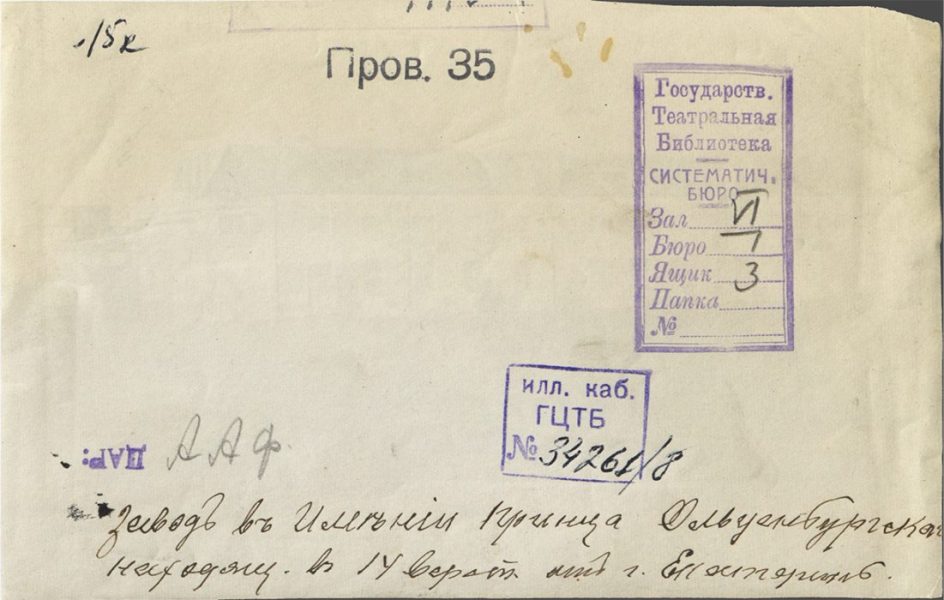 15к
Пров. 35
Государств.
Театральная
Библиотека
СИСТЕМАТИЧ.
БЮРО
Зал VI
Бюро 1
Ящик 3
Папка
№
илл. каб.
ГЦТБ
№ 34261/8
ДАР: А А Ф.
Заводъ въ Имѣнiи Принца Ольденбургска
находящ. в 14 верст. отъ г. Екатеринб.